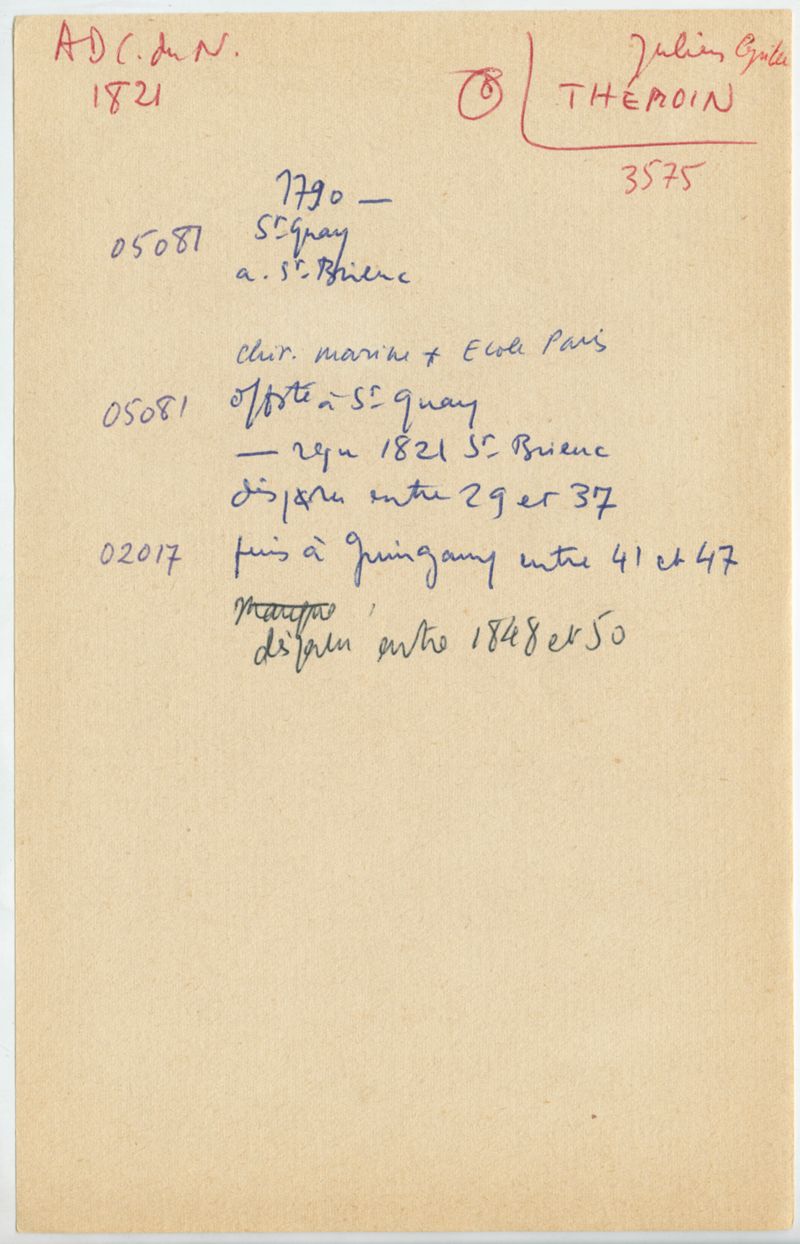 A D C. du N.
1821
8
Julien
THEROIN
3575
1790 —
05081 St Quay
a. St. Brieuc
chir. marine + Ecole Paris
05081 à St Quay
— reçu 1821 St Brieuc
disparu entre 29 et 37
02017 puis à Guingamp entre 41 et 47
manque
disparu entre 1848 et 50